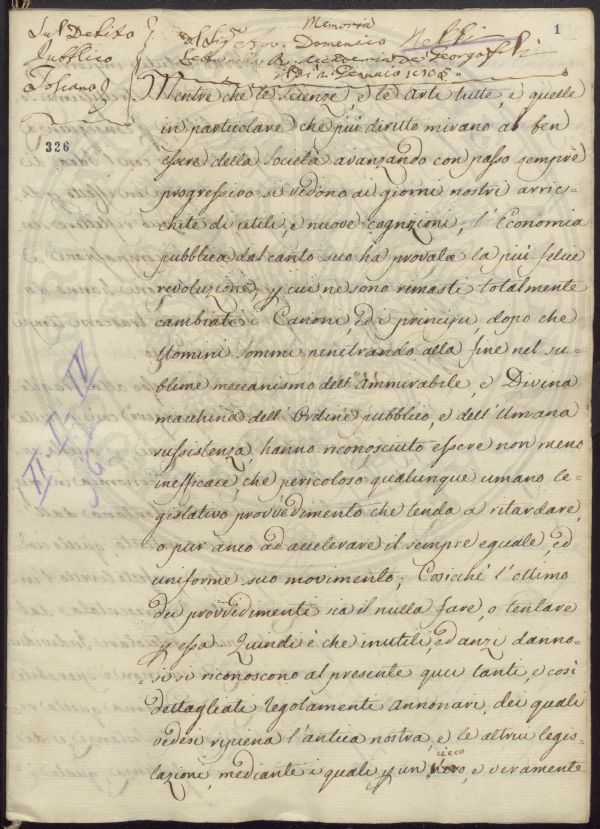 Sul Debito
Pubblico
Toscano
326
Memoria
del Sigr. Domenico Nelli
Letta nella R. Accademia dei Georgofili
Gennaio
1
Mentre che le Scienze, e le Arti tutte, e quelle
in particolare che più diritto mirano al ben
essere della Società avanzando con passo sempre
progressivo si vedono ai giorni nostri arric-
chite di utili, e nuove cognizioni, l'Economia
pubblica dal canto suo ha provata la più felice
revoluzione, p cui ne sono rimasti totalmente
cambiati i Canoni, ed i principii, dopo che
Uomini sommi penetrando alla fine nel su-
blime meccanismo dell'ammirabile, e Divina
macchina dell'Ordine pubblico, e dell'Umana
sussistenza, hanno riconosciuto essere non meno
inefficace che pericoloso qualunque umano le-
gislativo provvedimento che tenda a ritardare,
o pur anco ad accelerare il sempre eguale, ed
uniforme suo movimento; Cosicchè l'ottimo
dei provvedimenti sia il nulla fare, o tentare
p essa. Quindi è che inutili, ed anzi danno-
si si riconoscono al presente quei tanti, e così
dettagliati regolamenti annonari, dei quali
vedesi ripiena l'antica nostra, e le altrui legis-
cieco
lazioni, mediante i quali p un vero, e veramente
II I IV